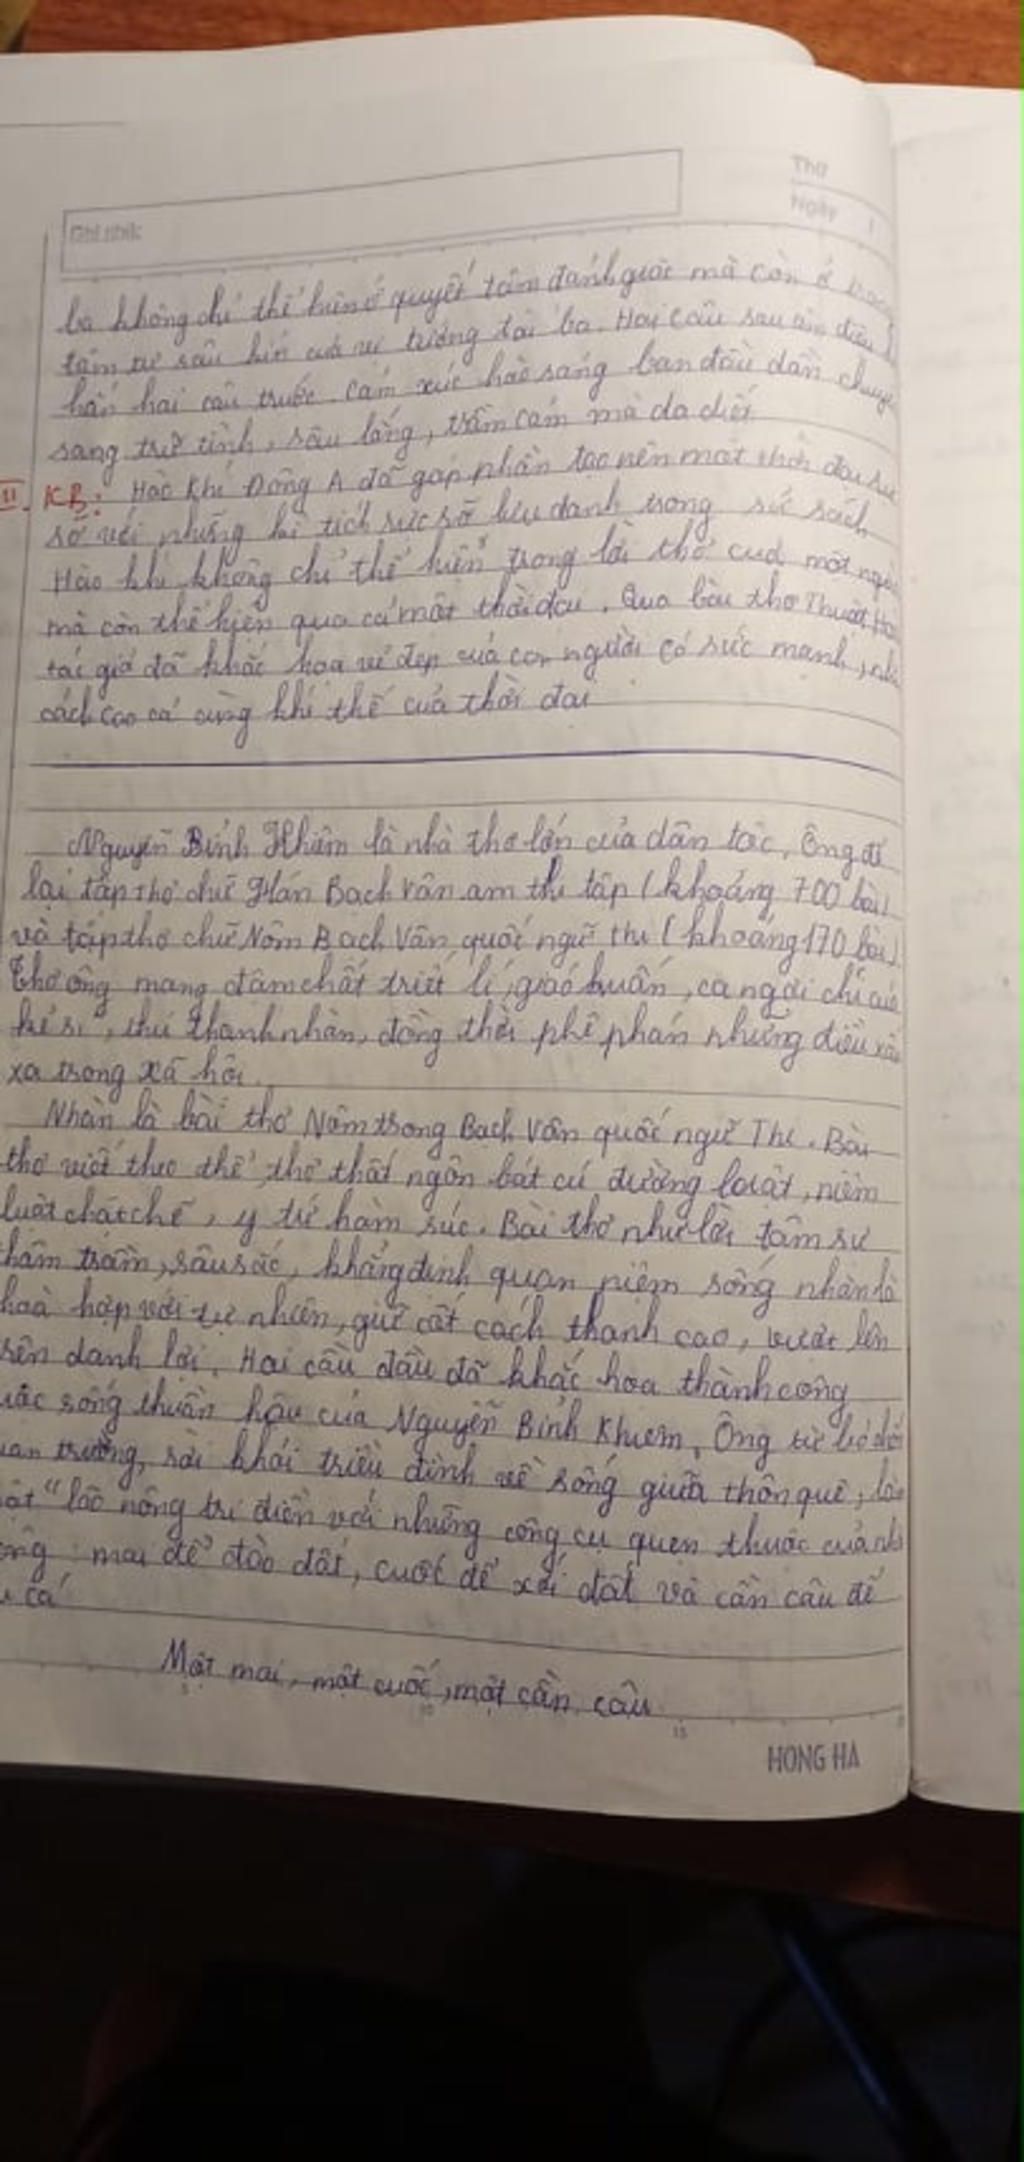 Thứ
Ngày /
Ghi nhớ:
ba không chỉ thể hiện ở quyết tâm đánh giặc mà còn ở
tâm tư sâu kín của vị tướng tài ba. Hai câu sau âm điệu
hẳn hai câu trước. cảm xúc hào sảng ban đầu dần chuyển
sang trữ tình, sâu lắng, trầm cảm mà da diết
II. KB: Hào khí Đông A đã góp phần tạo nên một thời đại
sỡ với những kì tích rực rỡ lưu danh trong sử sách
Hào khí không chỉ thể hiện trong lời thơ của một người
mà còn thể hiện qua cả một thời đại. Qua bài thơ Thuật Hoài
tác giả đã khắc hoạ vẻ đẹp của con người có sức mạnh,
cách cao cả cùng khí thế của thời đại
Nguyễn Bỉnh Khiêm là nhà thơ lớn của dân tộc. Ông để
lại tập thơ chữ Hán Bạch Vân am thi tập (khoảng 700 bài)
và tập thơ chữ Nôm Bạch Vân quốc ngữ thi (khoảng 170 bài).
Thơ ông mang đậm chất triết lí, giáo huấn, ca ngợi chí của
kẻ sĩ, thú thanh nhàn, đồng thời phê phán những điều xấu
xa trong xã hội.
Nhàn là bài thơ Nôm trong Bạch Vân quốc ngữ Thi. Bài
thơ viết theo thể thơ thất ngôn bát cú đường luật, niêm
luật chặt chẽ, ý tứ hàm súc. Bài thơ như lời tâm sự
thâm trầm, sâu sắc, khẳng định quan niệm sống nhàn là
hoà hợp với tự nhiên, giữ cốt cách thanh cao, vượt lên
trên danh lợi. Hai câu đầu đã khắc hoạ thành công
cuộc sống thuần hậu của Nguyễn Bỉnh Khiêm. Ông từ bỏ chốn
quan trường, rời khỏi triều đình về sống giữa thôn quê, làm
một "lão nông tri điền với những công cụ quen thuộc của nhà
nông: mai để đào đất, cuốc để xới đất và cần câu để
câu cá
Một mai, một cuốc, một cần câu
HONG HA